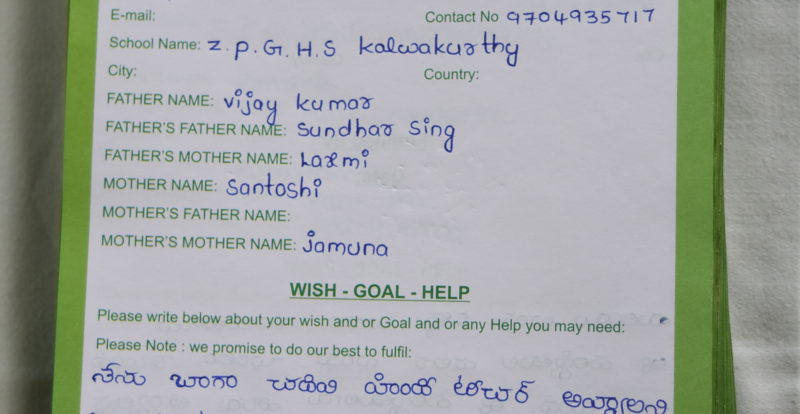 E-mail: Contact No 9704935717
School Name: Z.P.G.H.S kalwakurthy
City: Country:
FATHER NAME: vijay kumar
FATHER'S FATHER NAME: Sundhar Sing
FATHER'S MOTHER NAME: Laxmi
MOTHER NAME: Santoshi
MOTHER'S FATHER NAME:
MOTHER'S MOTHER NAME: Jamuna
WISH - GOAL - HELP
Please write below about your wish and or Goal and or any Help you may need:
Please Note : we promise to do our best to fulfil:
నేను బాగా చదివి టీచర్ అవ్వాలని